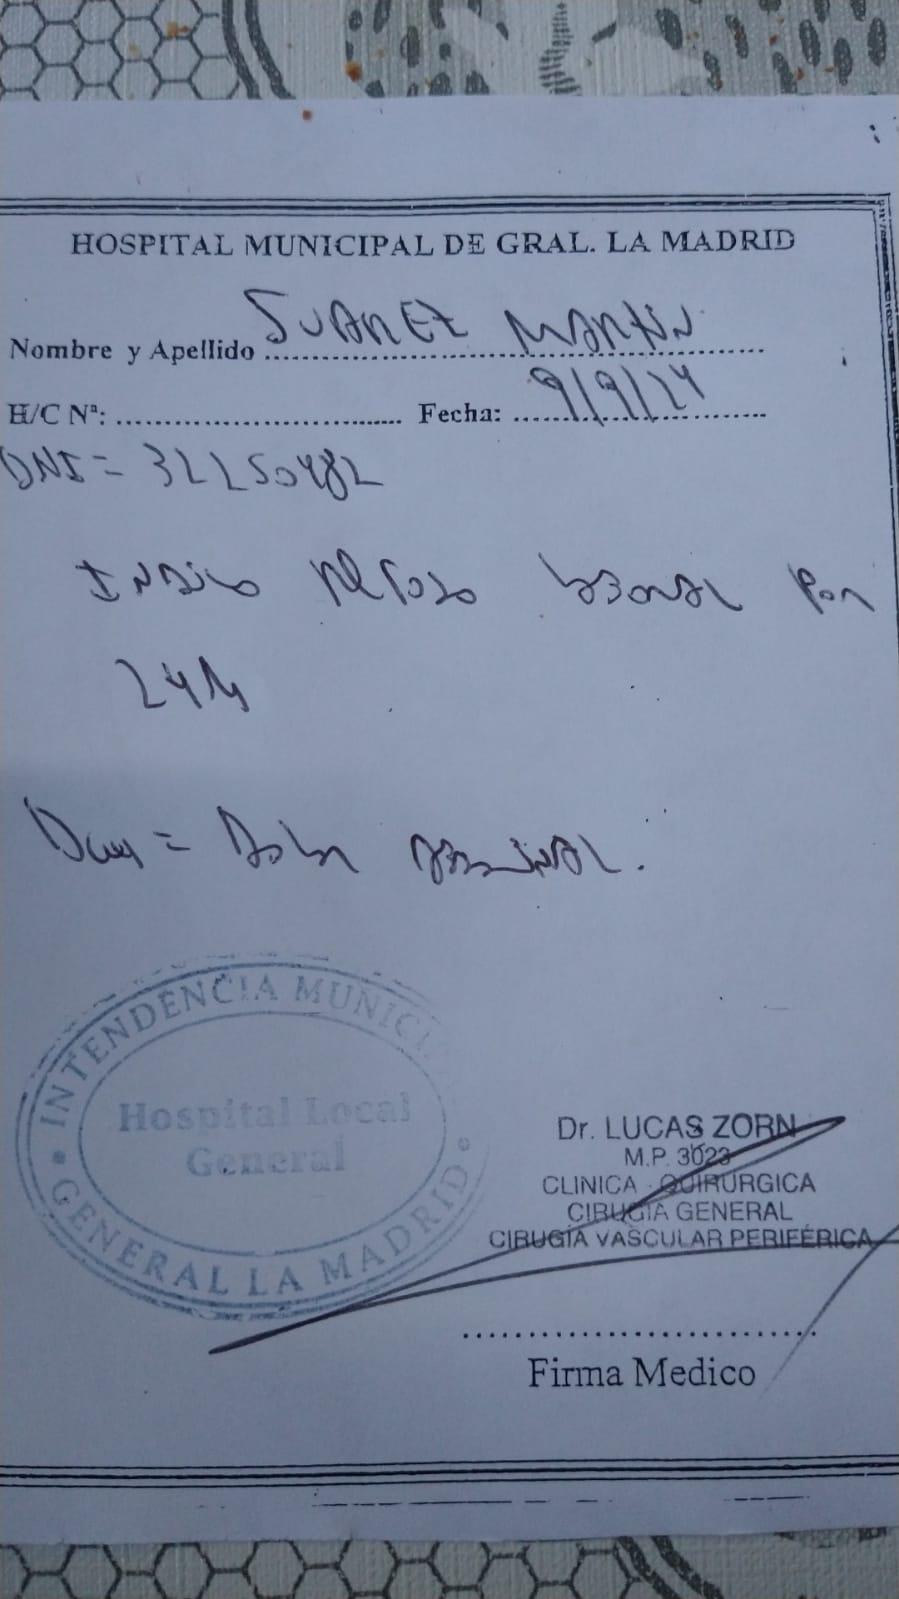 HOSPITAL MUNICIPAL DE GRAL. LA MADRID
Nombre y Apellido SUAREZ MARTIN
H/C Nª: Fecha: 9/9/24
DNI = 32250482
INDICO REPOSO LABORAL POR
24H
Dolor ABDOMINAL.
INTENDENCIA MUNICI
Hospital Local
General
GENERAL LA MADRID
Dr. LUCAS ZORN
M.P. 3023
CLINICA - QUIRURGICA
CIRUGIA GENERAL
CIRUGÍA VASCULAR PERIFÉRICA
Firma Medico